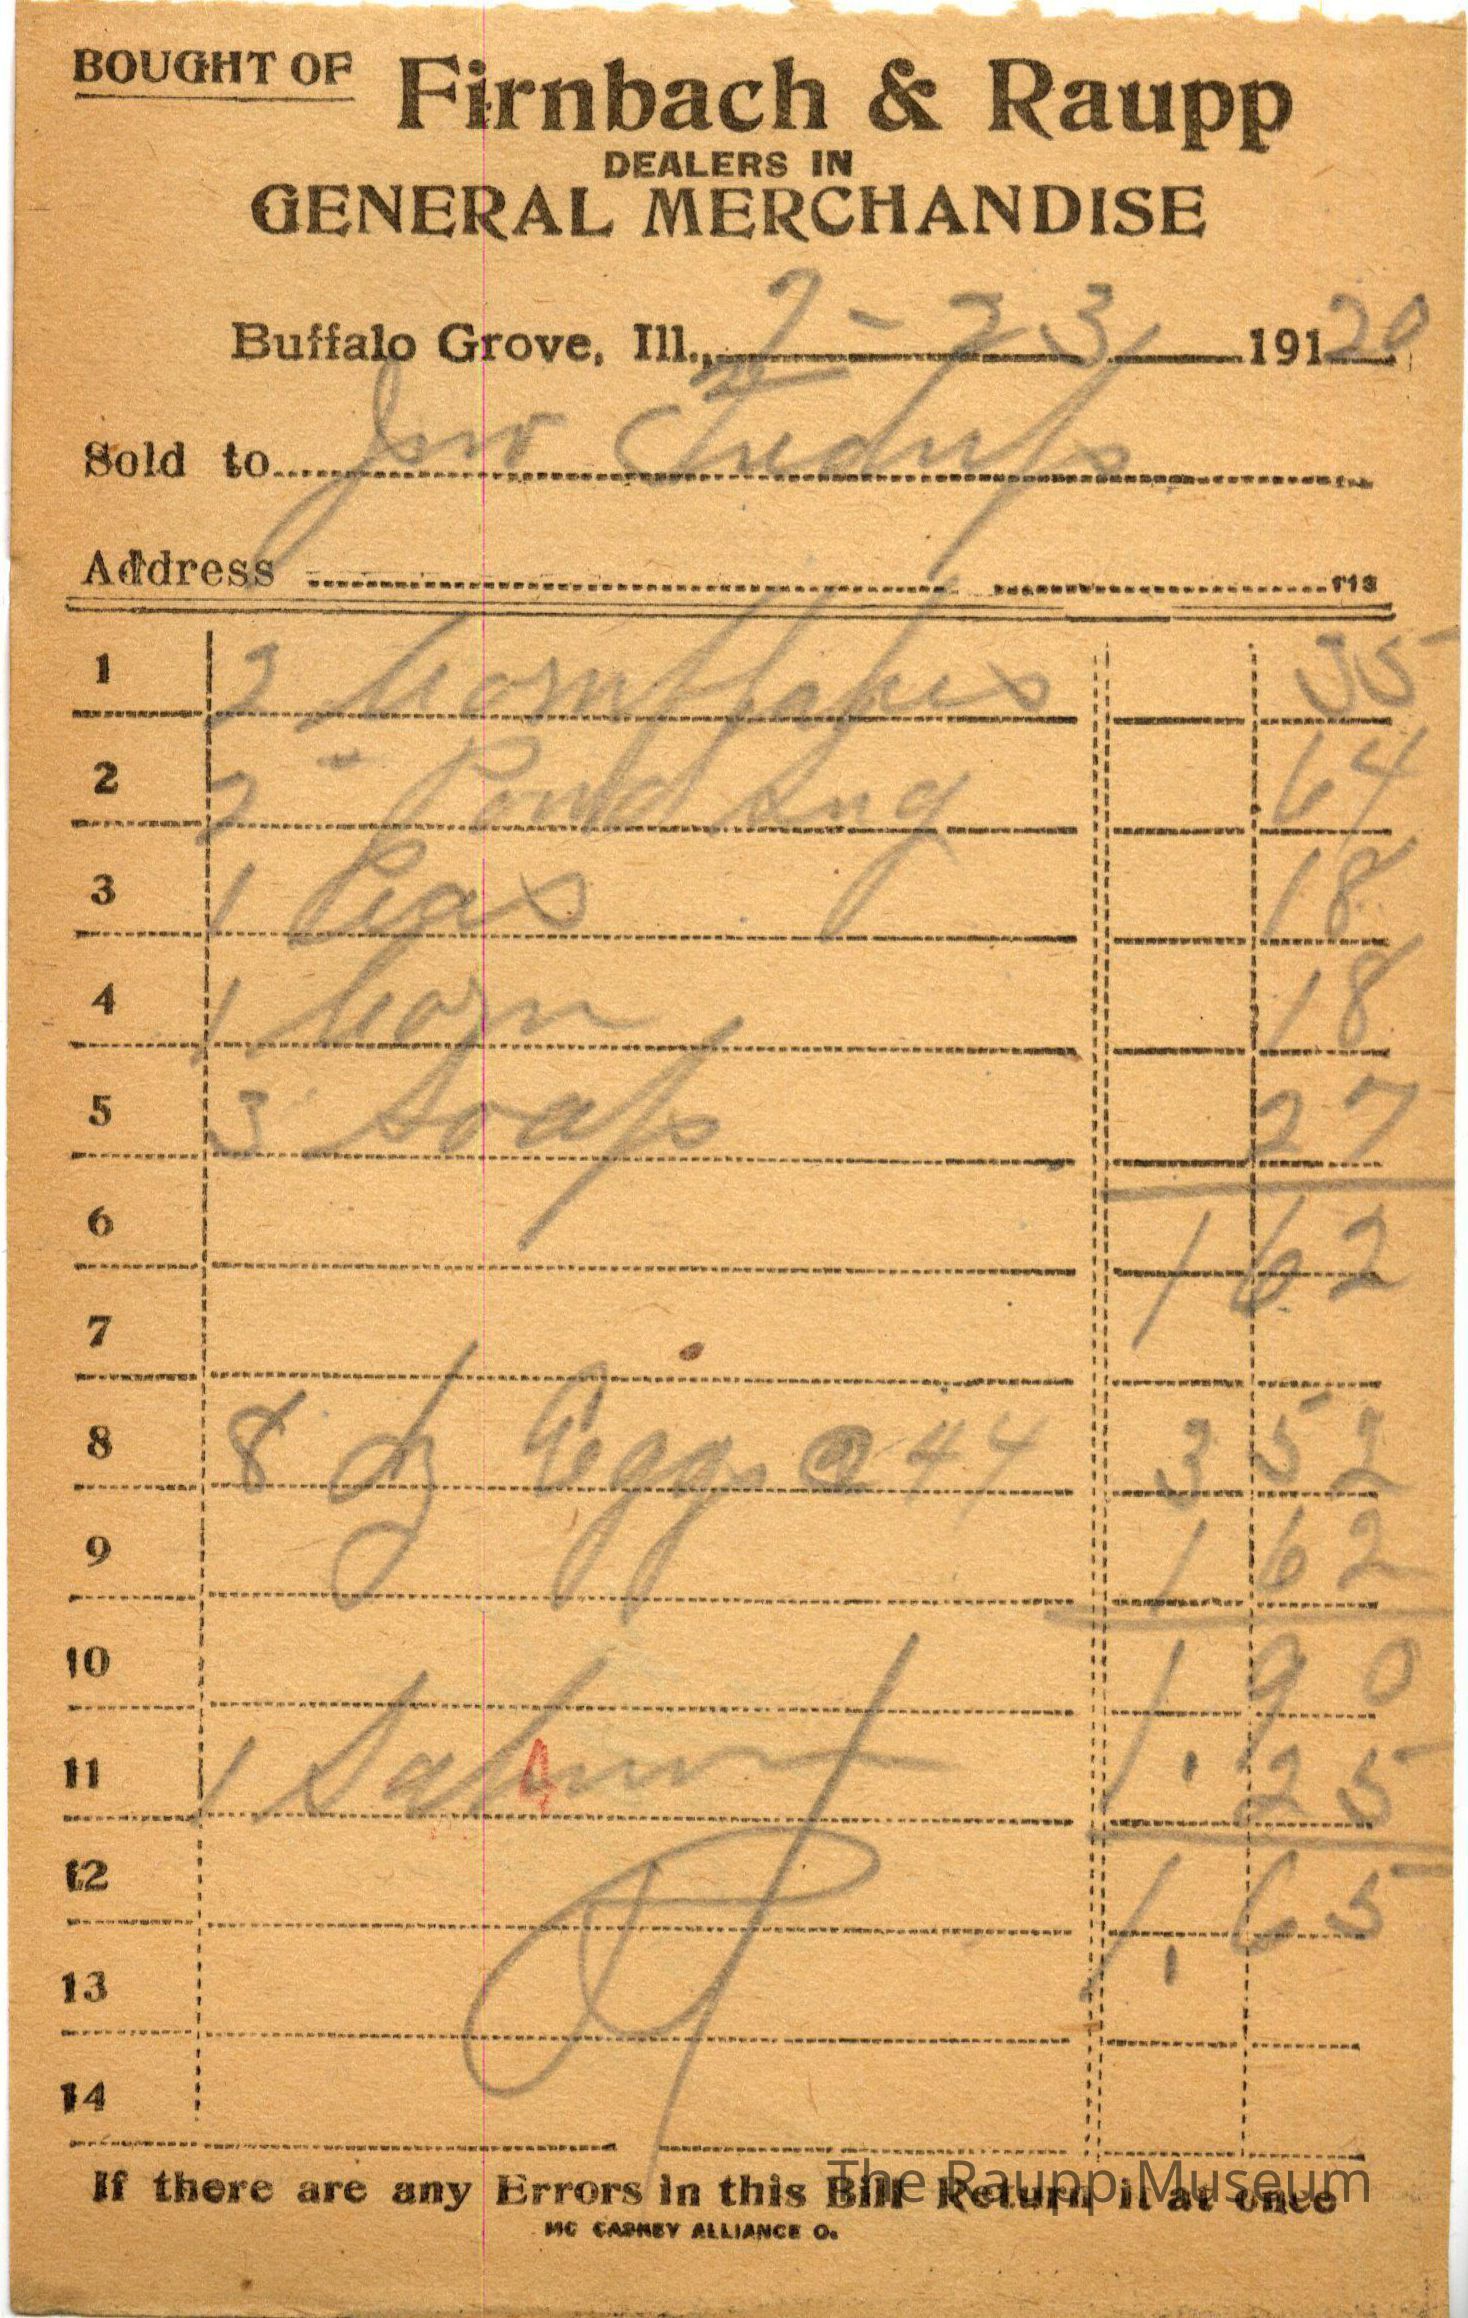 BOUGHT OF Firnbach & Raupp
DEALERS IN
GENERAL MERCHANDISE
Buffalo Grove, Ill., 7-23 191 20
Sold to
Address
1 2 Cornflakes 35
2 2 " 64
3 1 Peas 18
4 1 Corn 18
5 3 Soap 27
6 1 62
7
8 8 dz Eggs @ 44 3 52
9 1 62
10 1.90
11 1 25
12 1.65
13
14
4
If there are any Errors in this Bill Return it at once
The Raupp Museum